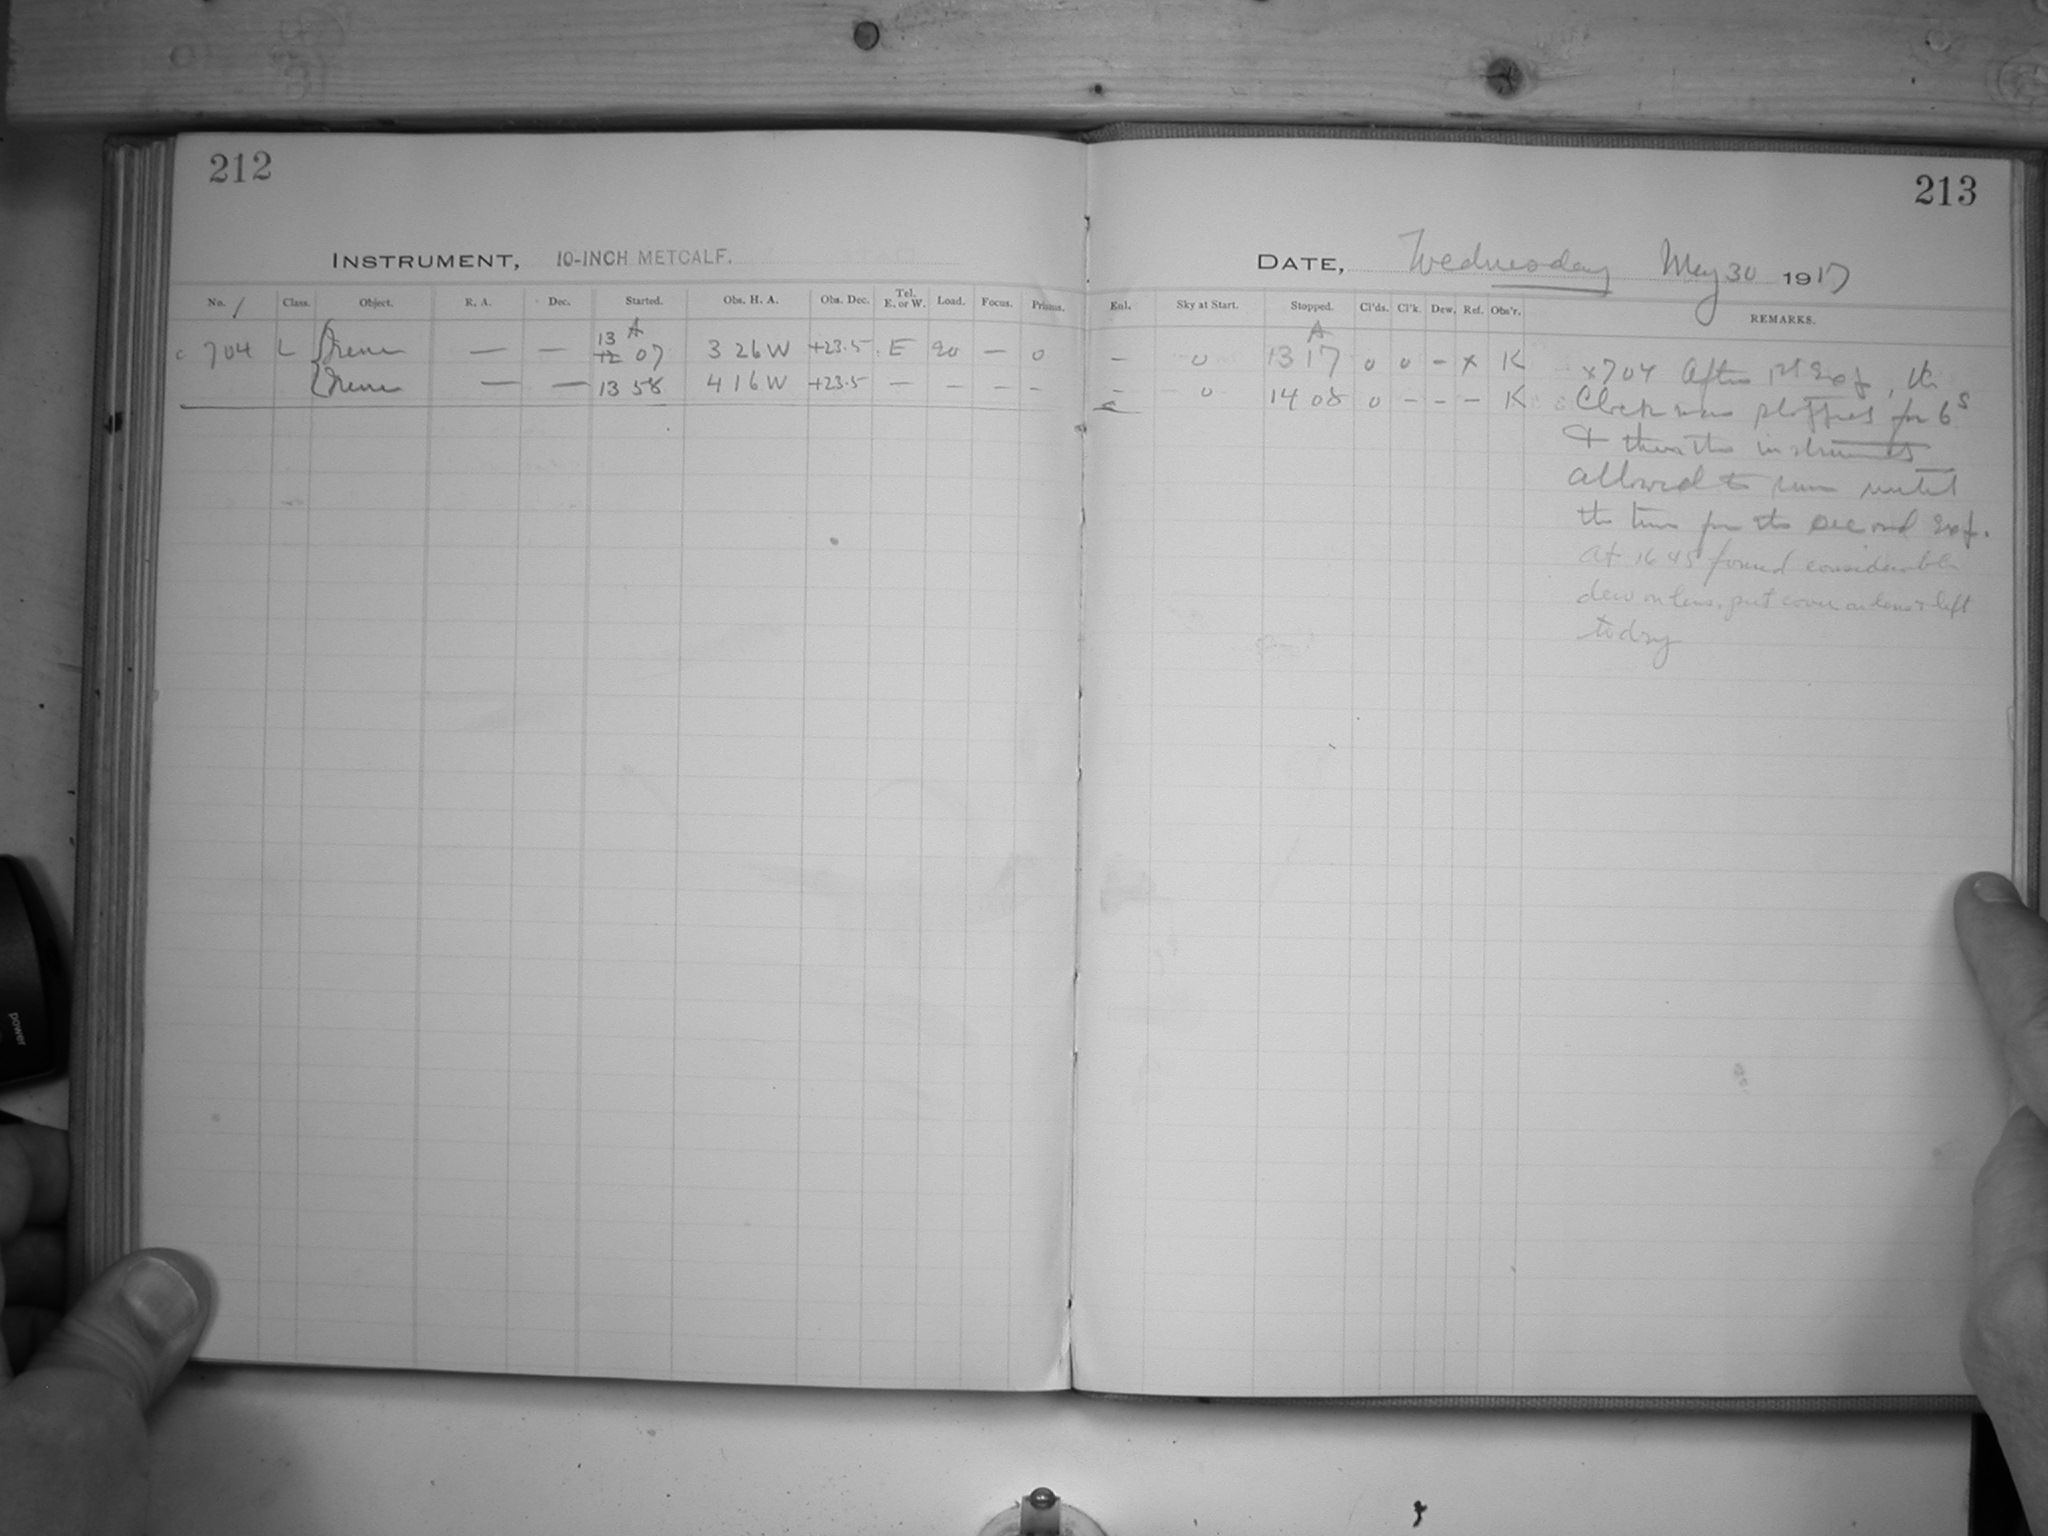 212
INSTRUMENT, 10-INCH METCALF.
No. / Class. Object. R. A. Dec. Started. Obs. H. A. Obs. Dec. Tel. E. or W. Load. Focus. Prisms.
13 A
c 704 L { Irene — — 12 07 3 26 W +23.5 E 20 — 0
{ Irene — — 13 58 4 16 W +23.5 — — — —
213
DATE, Wednesday May 30 1917
Enl. Sky at Start. Stopped. Cl'ds. Cl'k. Dew. Ref. Obs'r. REMARKS.
A
— 0 13 17 0 0 – x K
— 0 14 08 0 – – – K
x704 After 1st Exp, the
Clock was stopped for 6s
+ then the instrument
allowed to run until
the time for the second Exp.
At 16 45 found considerable
dew on lens, put cover on lens + left
to dry
power